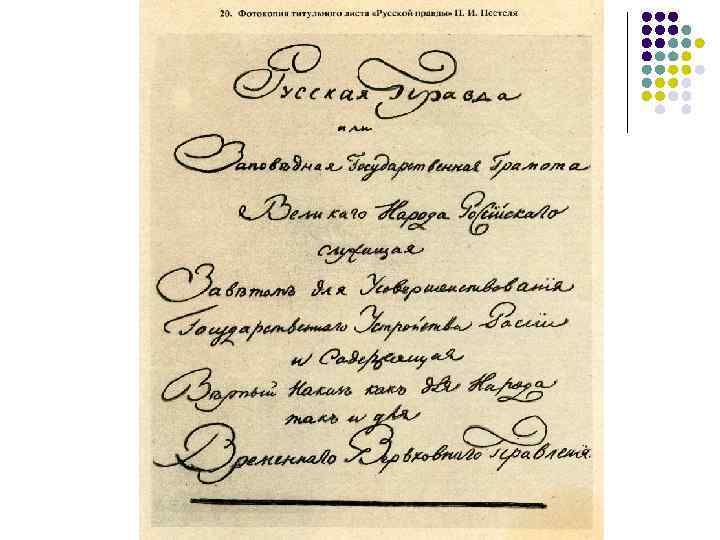 20. Фотокопия титульного листа «Русской правды» П. И. Пестеля
Русская Правда
или
Заповѣдная Государственная Грамота
Великаго Народа Россійскаго
служащая
Завѣтомъ для Усовершенствованія
Государственнаго Устройства Россіи
и Содержащая
Вѣрный Наказъ какъ для Народа
такъ и для
Временнаго Верховнаго Правленія.